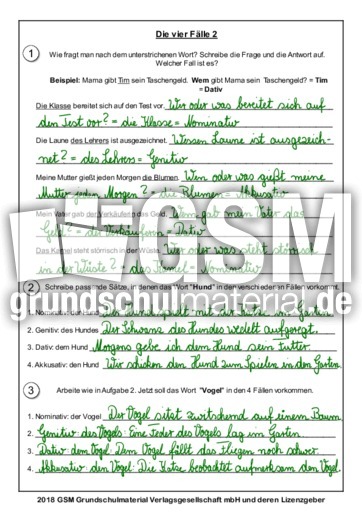 Die vier Fälle 2
1 Wie fragt man nach dem unterstrichenen Wort? Schreibe die Frage und die Antwort auf.
Welcher Fall ist es?
Beispiel: Mama gibt Tim sein Taschengeld. Wem gibt Mama sein Taschengeld? = Tim
= Dativ
Die Klasse bereitet sich auf den Test vor. Wer oder was bereitet sich auf
den Test vor? = die Klasse = Nominativ
Die Laune des Lehrers ist ausgezeichnet. Wessen Laune ist ausgezeich-
net? = des Lehrers = Genitiv
Meine Mutter gießt jeden Morgen die Blumen. Wen oder was gießt meine
Mutter jeden Morgen? = die Blumen = Akkusativ
Mein Vater gab der Verkäuferin das Geld. Wem gab mein Vater das
Geld? = der Verkäuferin = Dativ
Das Kamel steht störrisch in der Wüste. Wer oder was steht störrisch
in der Wüste? = das Kamel = Nominativ
GSM
grundschulmaterial.de
2 Schreibe passende Sätze, in denen das Wort "Hund" in den verschiedenen Fällen vorkommt.
1. Nominativ: der Hund Der Hund
2. Genitiv: des Hundes Der Schwanz des Hundes wedelt aufgeregt.
3. Dativ: dem Hund Morgens gebe ich dem Hund sein Futter.
4. Akkusativ: den Hund Wir schicken den Hund zum Spielen in den Garten.
3 Arbeite wie in Aufgabe 2. Jetzt soll das Wort "Vogel" in den 4 Fällen vorkommen.
1. Nominativ: der Vogel Der Vogel sitzt zwitschernd auf einem Baum.
2. Genitiv des Vogels: Eine Feder des Vogels lag im Garten.
3. Dativ dem Vogel: Dem Vogel fällt das Fliegen noch schwer.
4. Akkusativ den Vogel: Die Katze beobachtet aufmerksam den Vogel.
2018 GSM Grundschulmaterial Verlagsgesellschaft mbH und deren Lizenzgeber